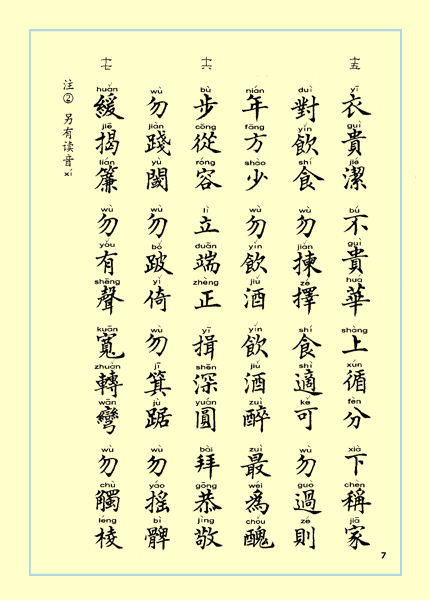 十五
yī guì jié bú guì huá shàng xún fèn xià chèn jiā
衣貴潔 不貴華 上循分 下稱家
duì yǐn shí wù jiǎn zé shí shì kě wù guò zé
對飲食 勿揀擇 食適可 勿過則
nián fāng shào wù yǐn jiǔ yǐn jiǔ zuì zuì wéi chǒu
年方少 勿飲酒 飲酒醉 最爲醜
十六
bù cōng róng lì duān zhèng yī shēn yuán bài gōng jìng
步從容 立端正 揖深圓 拜恭敬
wù jiàn yù wù bǒ yǐ wù jī jù wù yáo bì
勿踐閾 勿跛倚 勿箕踞 勿搖髀
十七
huǎn jiē lián wù yǒu shēng kuān zhuǎn wān wù chù léng
緩揭簾 勿有聲 寬轉彎 勿觸棱
注② 另有读音 xí
7